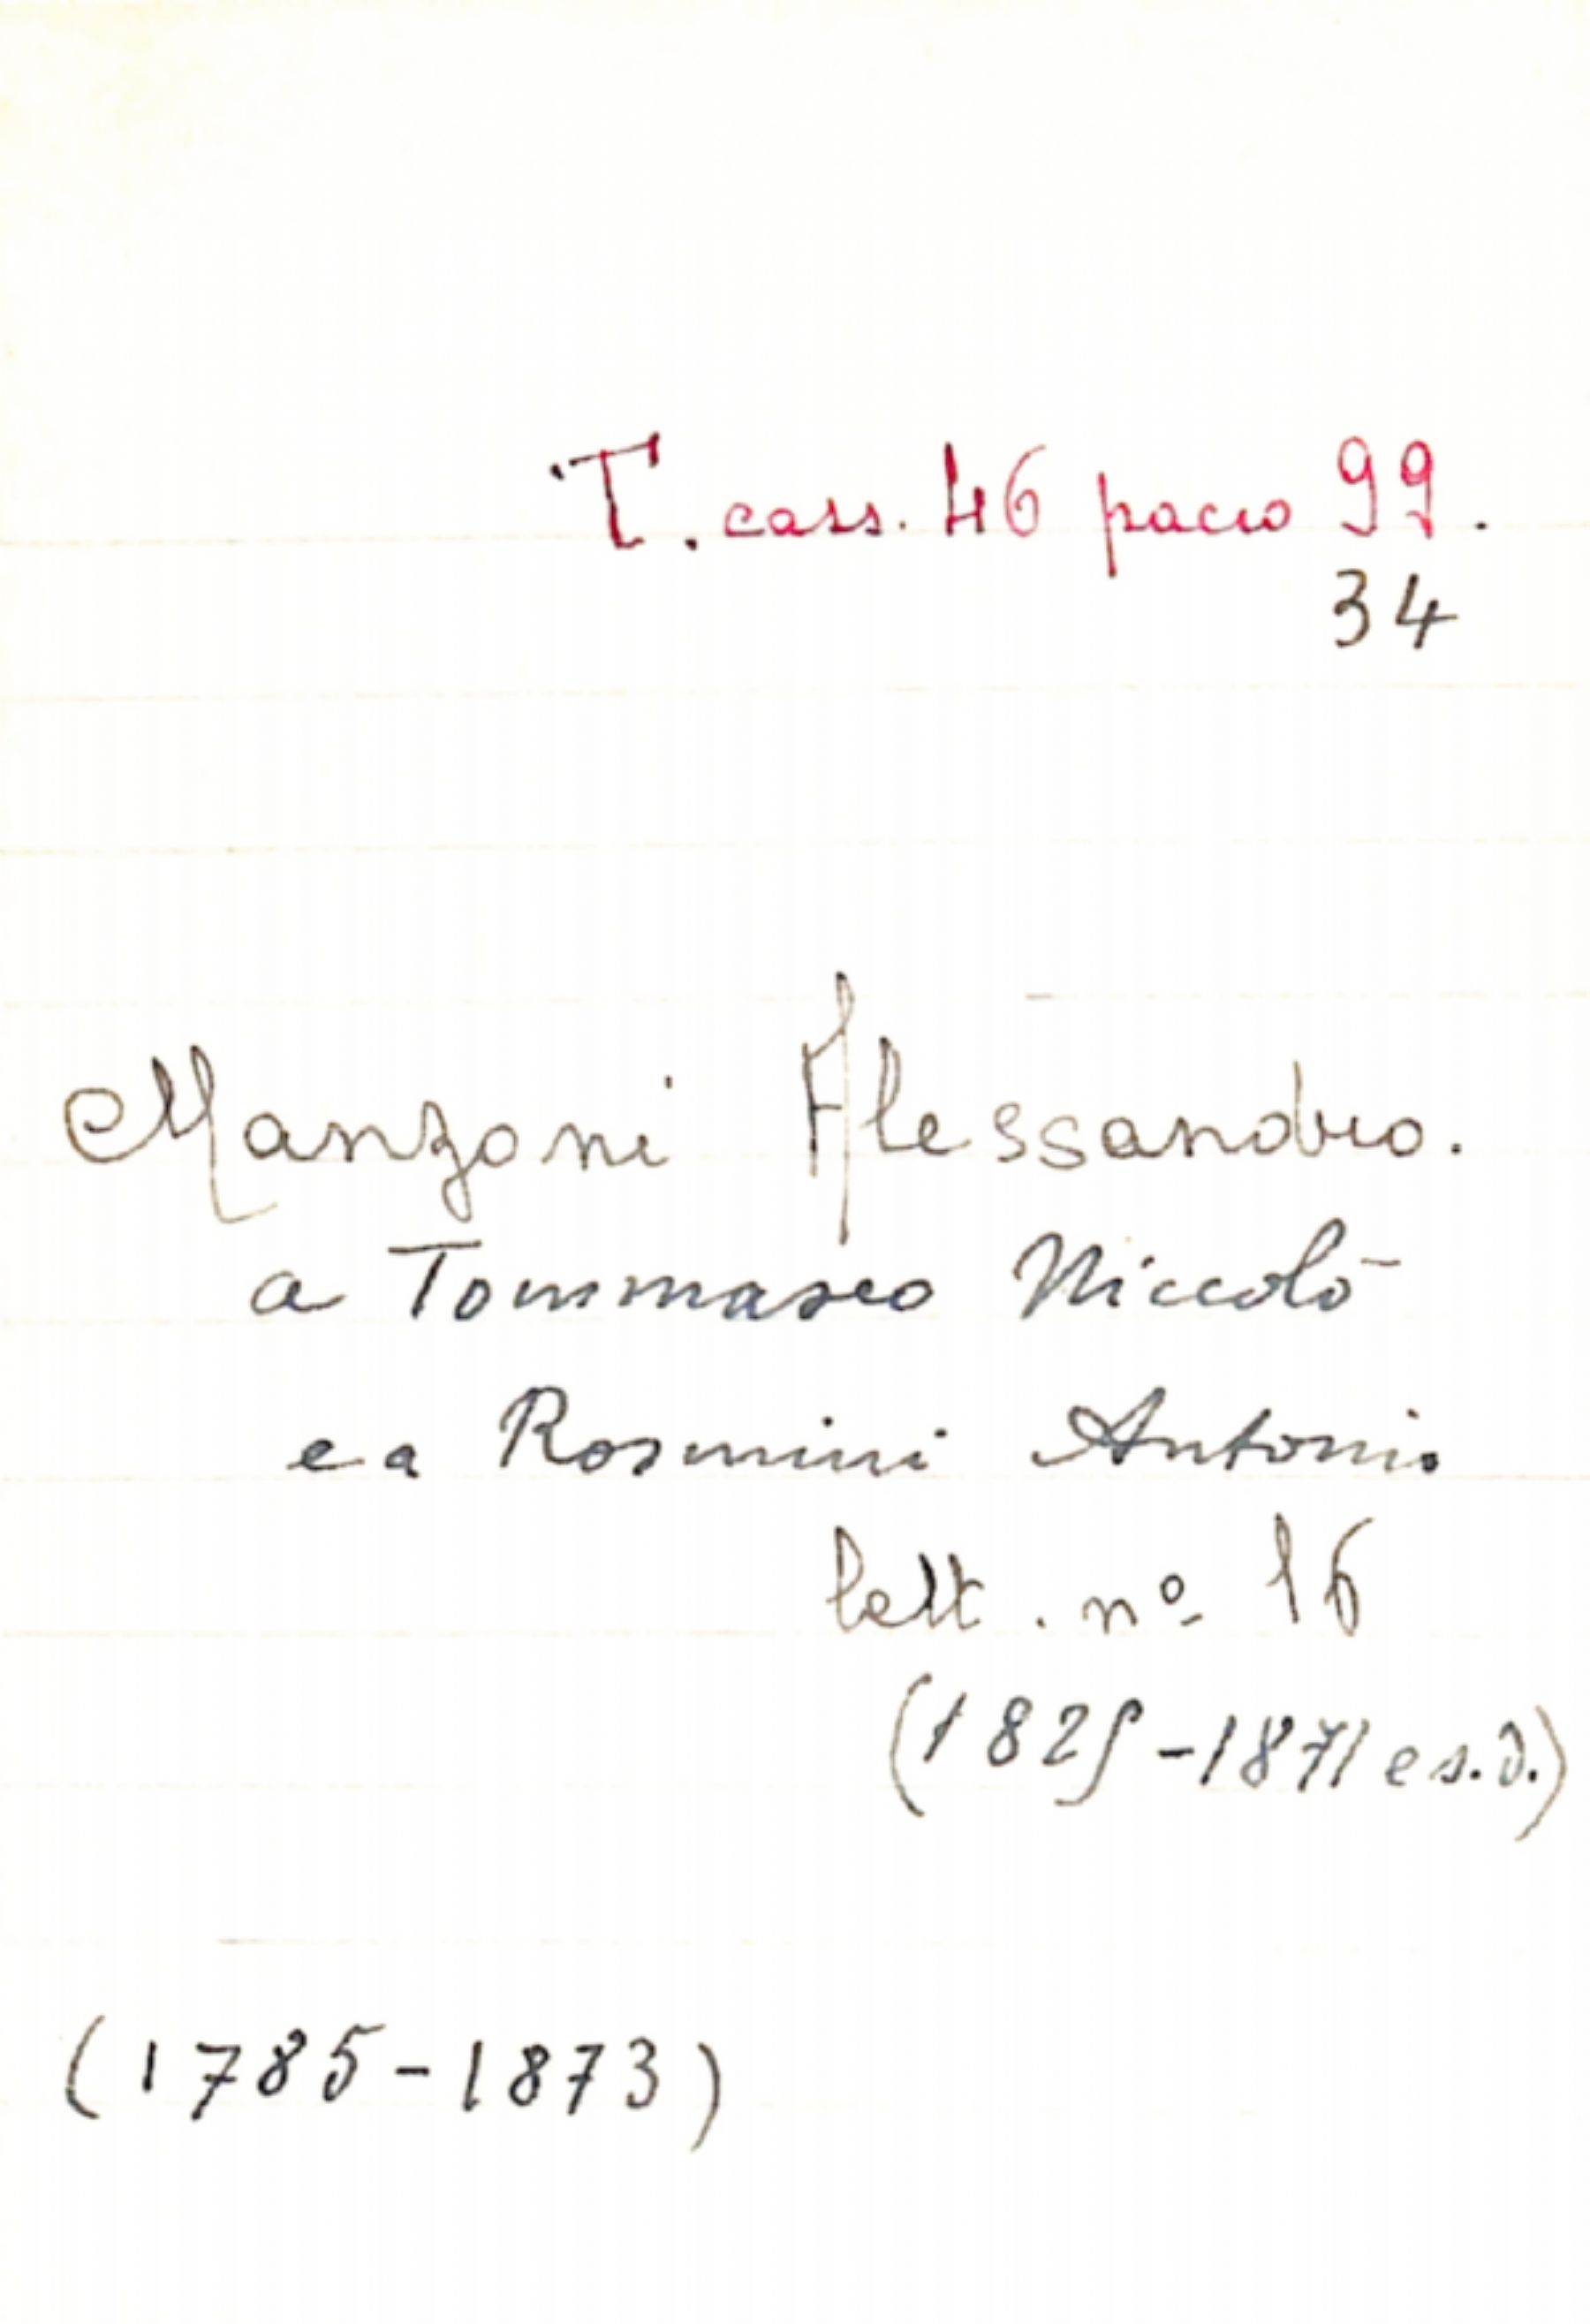 T. cass. 46 pacco 99.
34
Manzoni Alessandro.
a Tommaseo Niccolò
e a Rosmini Antonio
lett. nº 16
(1825-1871 e s.d.)
(1785-1873)